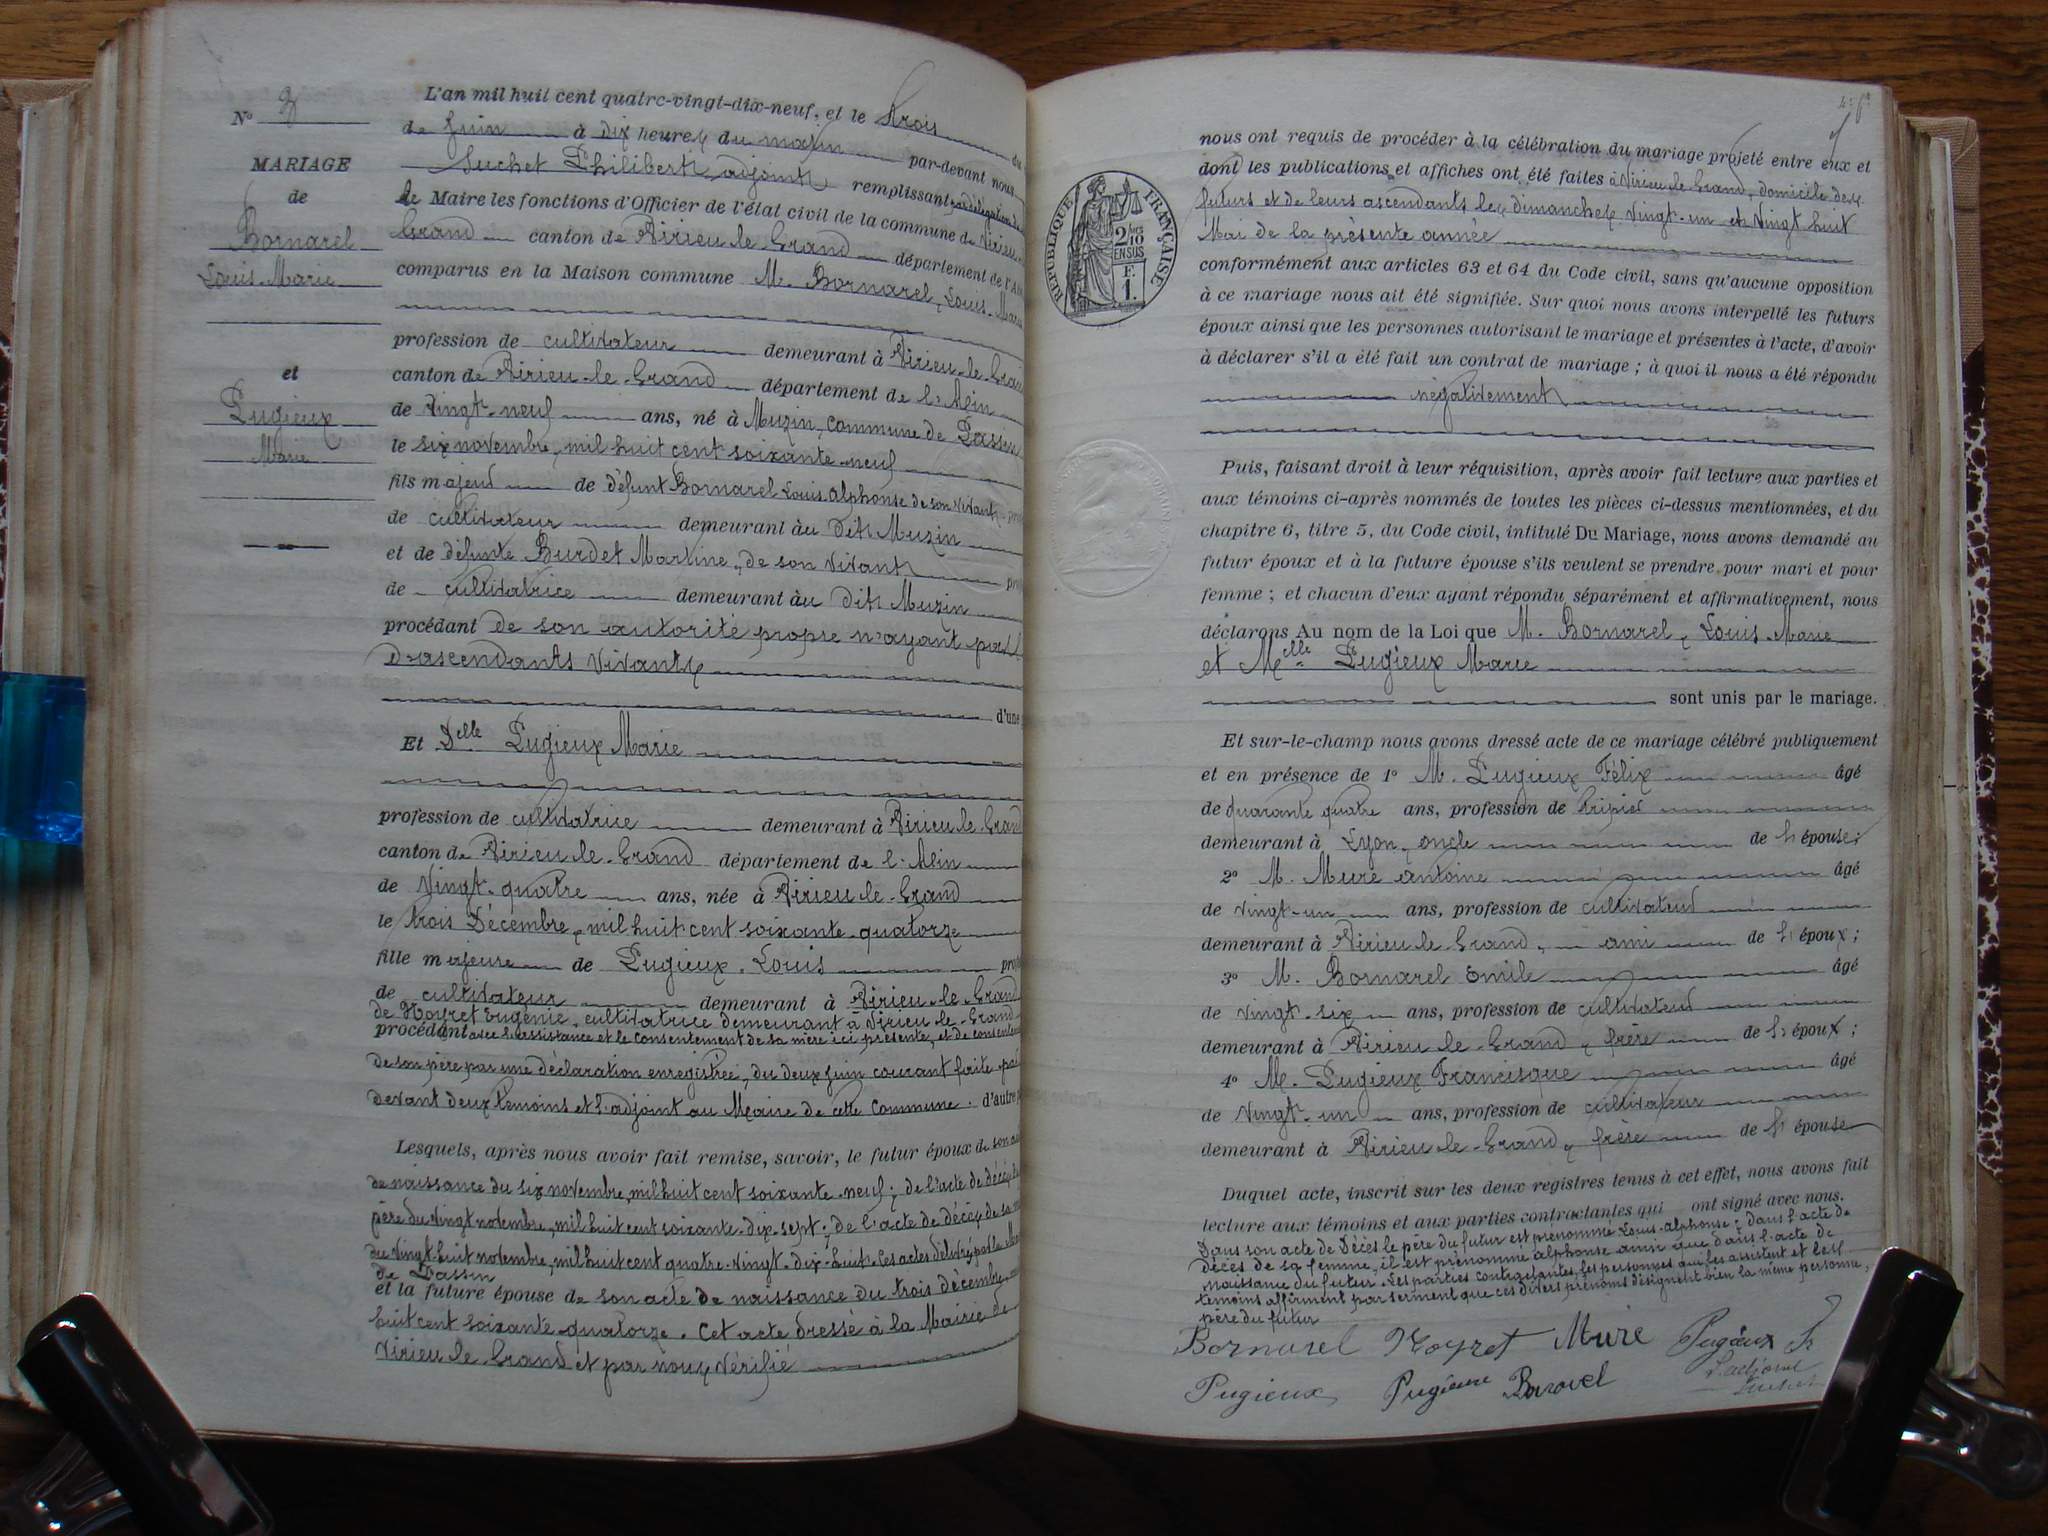 N° 3
MARIAGE
de
Bornarel
Louis-Marie
et
Pugieux
Marie
L'an mil huit cent quatre-vingt-dix-neuf, et le trois
de Juin à dix heures du matin par-devant nous
Suchet Philibert adjoint remplissant par délégation
le Maire les fonctions d'Officier de l'état civil de la commune de Virieu-le-
Grand canton de Virieu-le-Grand département de l'Ain
comparus en la Maison commune M. Bornarel, Louis-Marie
profession de cultivateur demeurant à Virieu-le-Grand
canton de Virieu-le-Grand département de l'Ain
de Vingt-neuf ans, né à Muzin, commune de Passin
le six novembre, mil huit cent soixante-neuf
fils majeur de défunt Bornarel Louis Alphonse de son vivant
de cultivateur demeurant au dit Muzin
et de défunte Burdet Martine, de son vivant
de cultivatrice demeurant au dit Muzin
procédant de son autorité propre n'ayant pas
d'ascendants vivants
d'une
Et Delle Pugieux Marie
profession de cultivatrice demeurant à Virieu-le-Grand
canton de Virieu-le-Grand département de l'Ain
de Vingt-quatre ans, née à Virieu-le-Grand
le trois Décembre, mil huit cent soixante-quatorze
fille majeure de Pugieux Louis
de cultivateur demeurant à Virieu-le-Grand
de Hoyret Eugénie, cultivatrice demeurant à Virieu-le-Grand
procédant avec l'assistance et le consentement de sa mère ici présente, et de consentement
de son père par une déclaration enregistrée, du deux juin courant faite par
devant deux témoins et l'adjoint au Maire de cette commune. d'autre
Lesquels, après nous avoir fait remise, savoir, le futur époux de son acte
de naissance du six novembre, mil huit cent soixante-neuf; de l'acte de décès de
père du vingt novembre, mil huit cent soixante-dix-sept; de l'acte de décès de sa
du vingt-huit novembre, mil huit cent quatre-vingt-dix-huit. Ces actes délivrés par la
de Passin
et la future épouse de son acte de naissance du trois décembre
huit cent soixante-quatorze. Cet acte dressé à la Mairie de
Virieu-le-Grand et par nous vérifié
RÉPUBLIQUE FRANÇAISE
2/10
EN SUS
F.
1.
nous ont requis de procéder à la célébration du mariage projeté entre eux et
dont les publications et affiches ont été faites à Virieu-le-Grand, domicile des
futurs et de leurs ascendants les dimanches vingt-un et vingt huit
Mai de la présente année
conformément aux articles 63 et 64 du Code civil, sans qu'aucune opposition
à ce mariage nous ait été signifiée. Sur quoi nous avons interpellé les futurs
époux ainsi que les personnes autorisant le mariage et présentes à l'acte, d'avoir
à déclarer s'il a été fait un contrat de mariage ; à quoi il nous a été répondu
négativement
Puis, faisant droit à leur réquisition, après avoir fait lecture aux parties et
aux témoins ci-après nommés de toutes les pièces ci-dessus mentionnées, et du
chapitre 6, titre 5, du Code civil, intitulé Du Mariage, nous avons demandé au
futur époux et à la future épouse s'ils veulent se prendre pour mari et pour
femme ; et chacun d'eux ayant répondu séparément et affirmativement, nous
déclarons Au nom de la Loi que M. Bornarel, Louis-Marie
et Melle Pugieux Marie
sont unis par le mariage.
Et sur-le-champ nous avons dressé acte de ce mariage célébré publiquement
et en présence de 1° M. Pugieux Félix âgé
de quarante quatre ans, profession de fripier
demeurant à Lyon, oncle de l'épouse;
2° M. Mure Antoine âgé
de vingt-un ans, profession de cultivateur
demeurant à Virieu-le-Grand, ami de l'époux;
3° M. Bornarel Emile âgé
de vingt-six ans, profession de cultivateur
demeurant à Virieu-le-Grand, frère de l'époux;
4° M. Pugieux Francisque âgé
de vingt-un ans, profession de cultivateur
demeurant à Virieu-le-Grand, frère de l'épouse
Duquel acte, inscrit sur les deux registres tenus à cet effet, nous avons fait
lecture aux témoins et aux parties contractantes qui ont signé avec nous.
Dans son acte de Décès le père du futur est prénommé Louis-Alphonse; dans l'acte de
décès de sa femme, il est prénommé Alphonse ainsi que dans l'acte de
naissance du futur. Les parties contractantes, les personnes qui les assistent et les
témoins affirment par serment que ces divers prénoms désignent bien la même personne,
père du futur
Bornarel Hoyret Mure Pugieux F
L'adjoint
Suchet
Pugieux Pugieux Bornarel